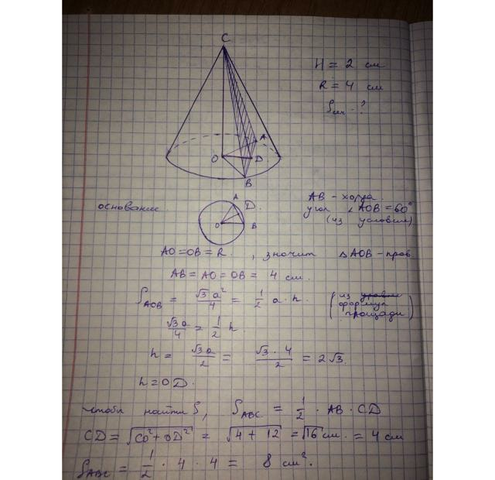 C
H = 2 см
R = 4 см
Sсеч ?
A
O D
B
основание
A
D.
O B
AB - хорда
угол ∠AOB = 60°
(из условия)
AO = OB = R, значит △AOB - прав.
AB = AO = OB = 4 см.
S_AOB = √3 a²/4 = 1/2 a · h.
(из формул площади)
√3 a/4 = 1/2 h
h = √3 a/2 = √3 · 4/2 = 2√3
h = OD.
чтобы найти S, S_ABC = 1/2 · AB · CD
CD = √CO² + OD² = √4 + 12 = √16 см. = 4 см
S_ABC = 1/2 · 4 · 4 = 8 см².